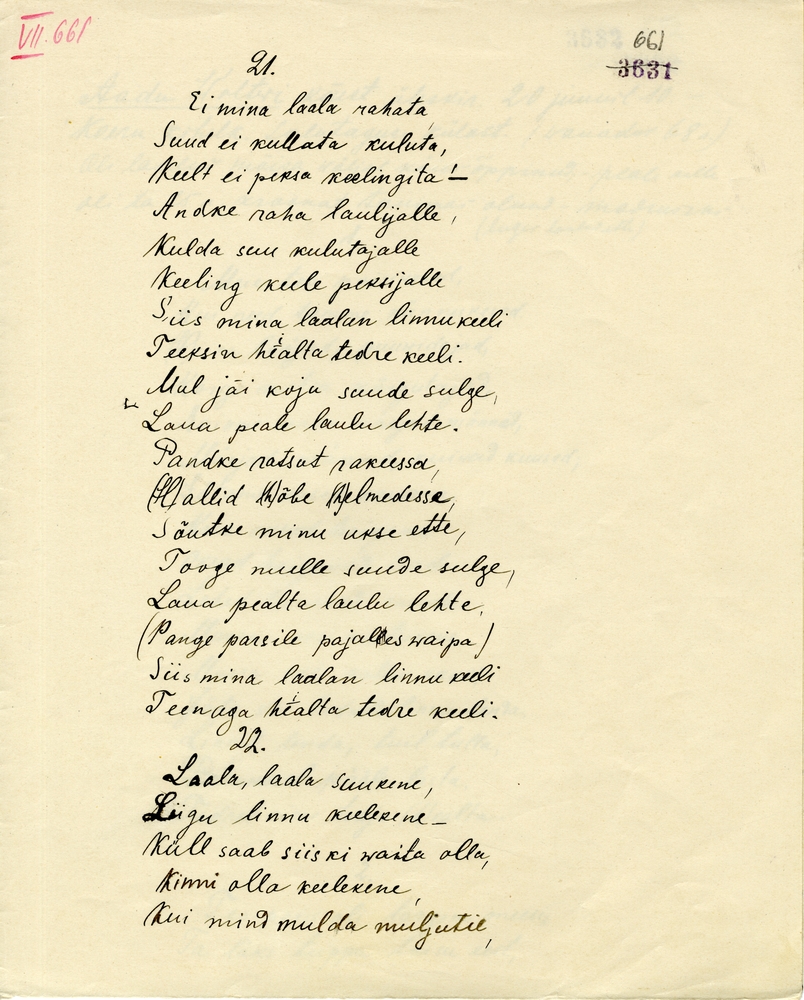 VII. 661
661
3631
21.
Ei mina laala rahata,
Suud ei kullata kuluta,
Keelt ei peksa keelingita! –
Andke raha laulijalle,
Kulda suu kulutajalle
Keeling keele peksijalle
Siis mina laalan linnu keeli
Teeksin healta tedre keeli.
Mul jäi koju suude sulge,
Laua peale laulu lehte.
Pandke ratsut rakeessa,
(H)allid (h)õbe (h)elmedesse,
Sõutke minu ukse ette,
Tooge mulle suude sulge,
Laua pealta laulu lehte.
(Pange parsile pajalles waipa)
Siis mina laalan linnu keeli
Teen aga healta tedre keeli.
22.
Laala, laala suukene,
Liigu linnu keelekene –
Küll saab siiski waita olla,
Kinni olla keelekene,
Kui mind mulda muljutie,